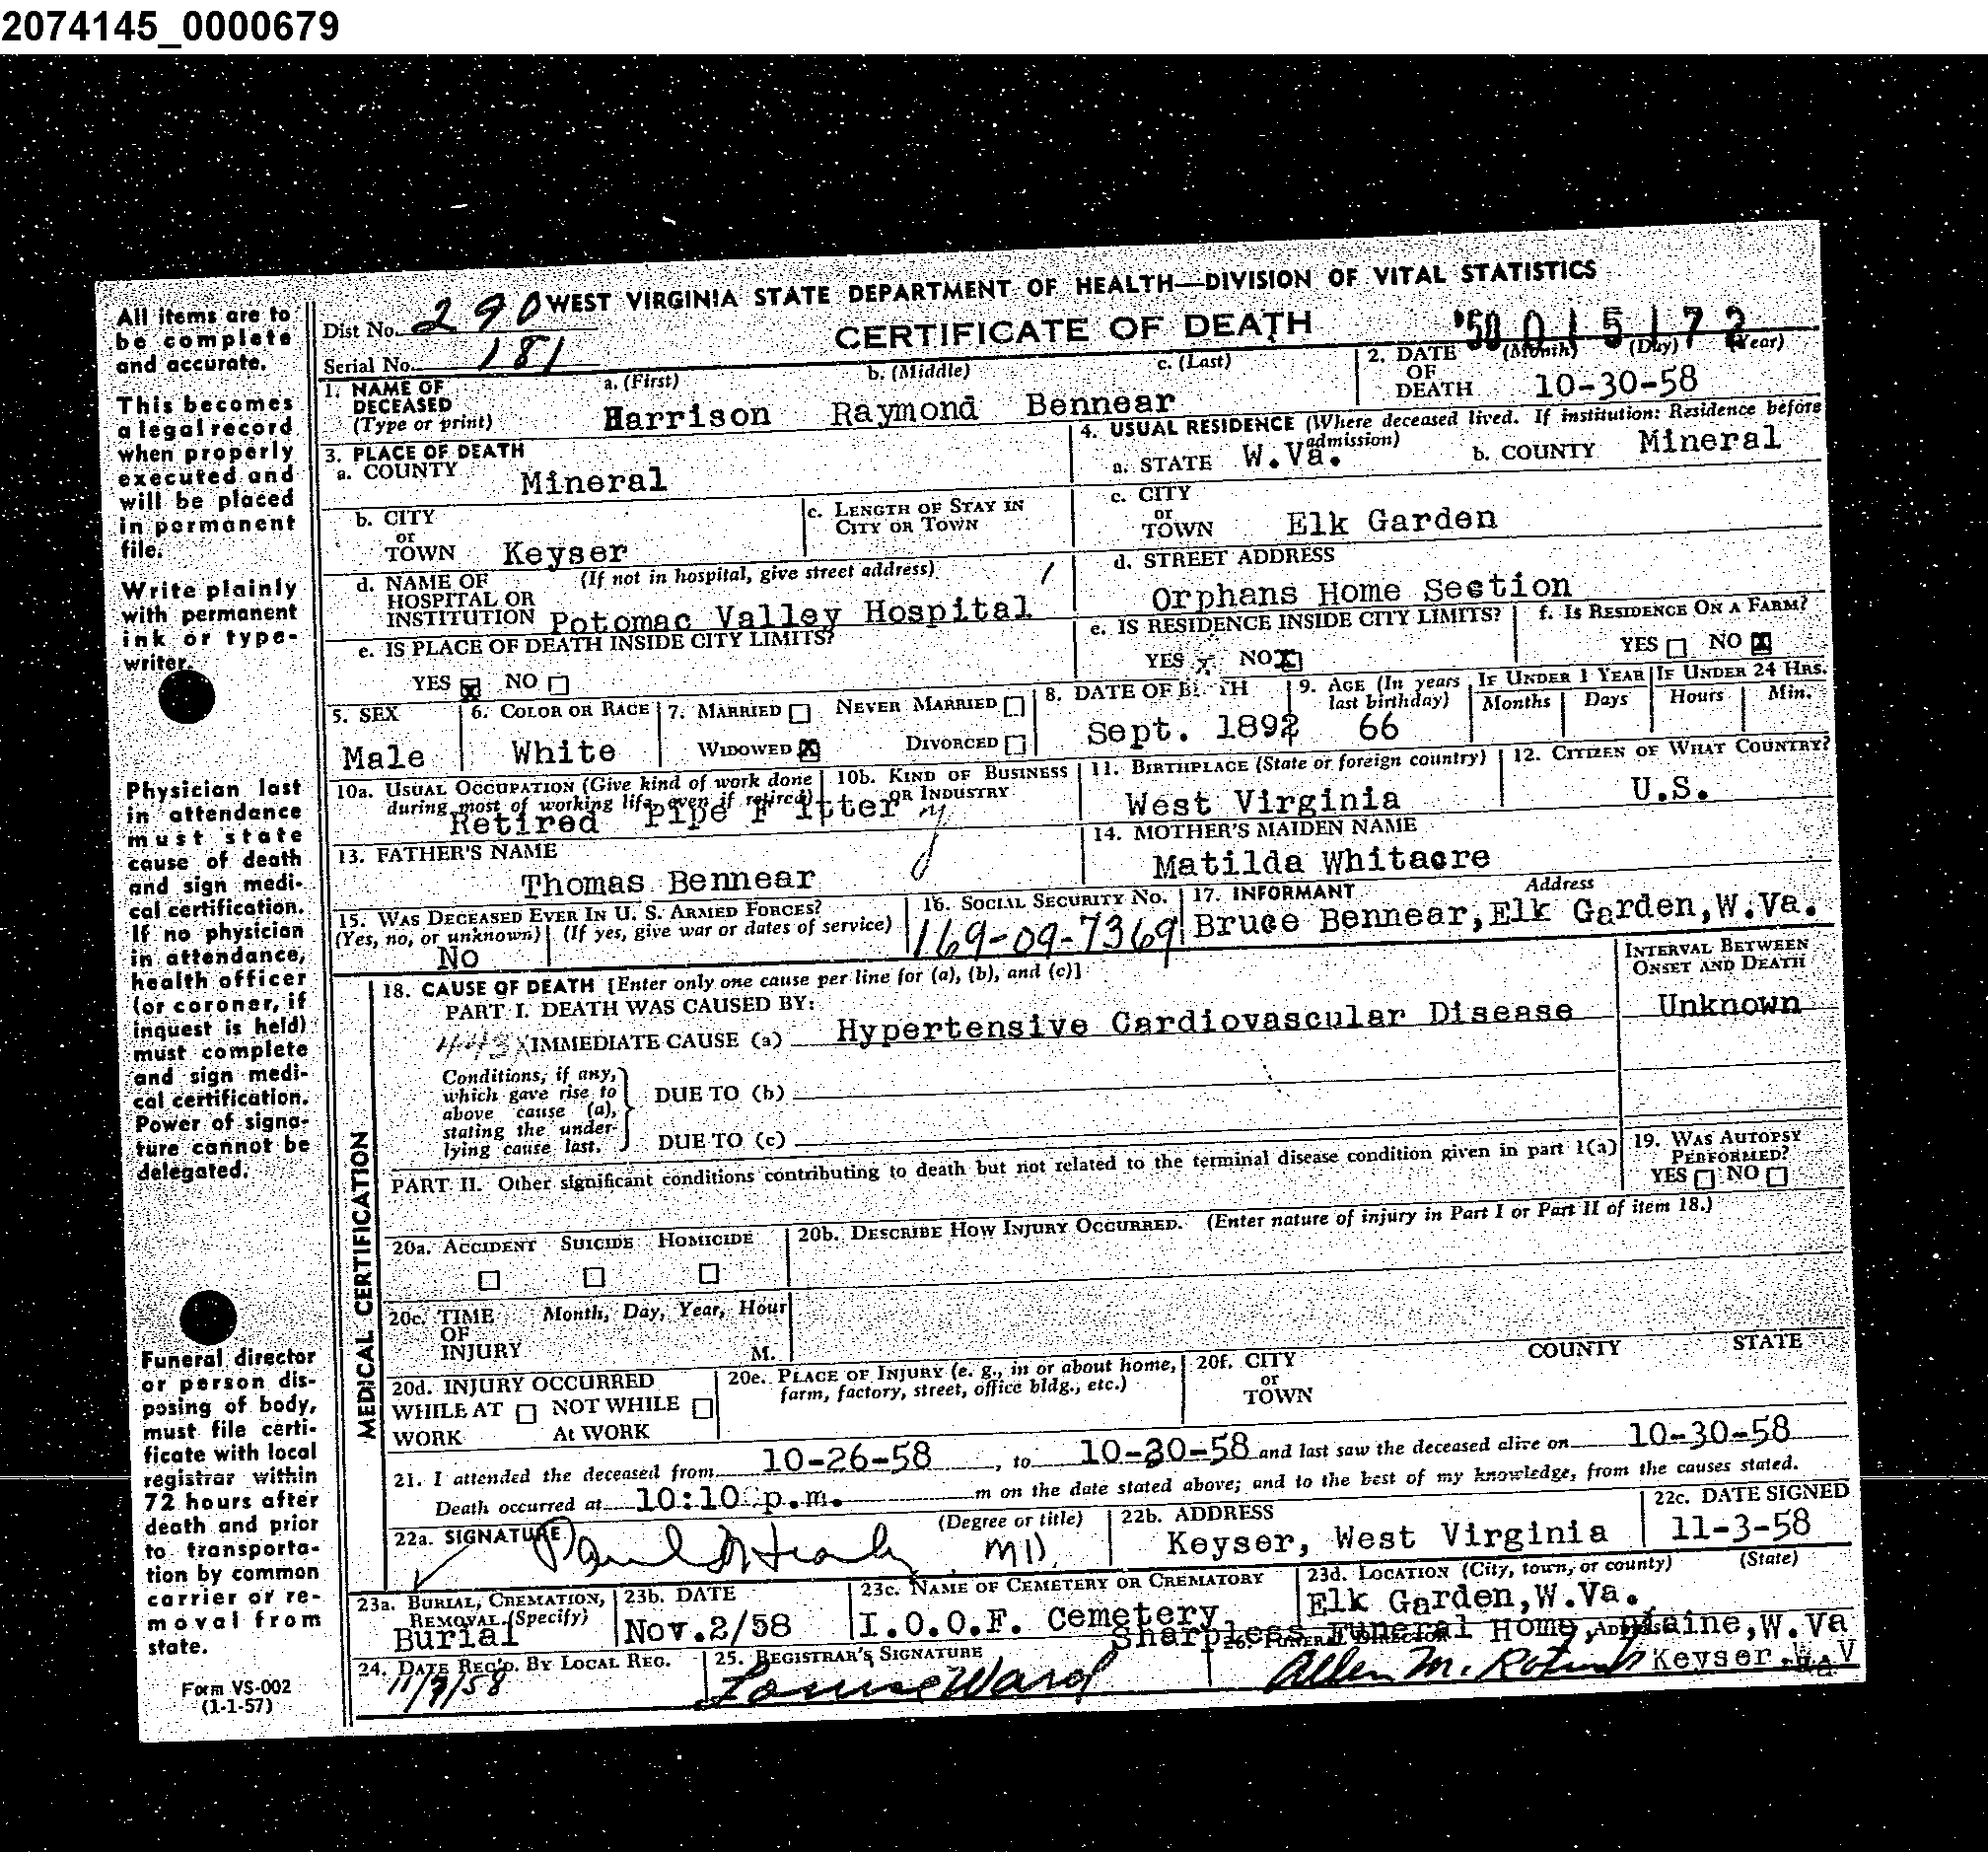 2074145_0000679
WEST VIRGINIA STATE DEPARTMENT OF HEALTH—DIVISION OF VITAL STATISTICS
CERTIFICATE OF DEATH
Dist No. 290
Serial No. 181
All items are to
be complete
and accurate.
This becomes
a legal record
when properly
executed and
will be placed
in permanent
file.
Write plainly
with permanent
ink or type-
writer.
Physician last
in attendance
must state
cause of death
and sign medi-
cal certification.
If no physician
in attendance,
health officer
(or coroner, if
inquest is held)
must complete
and sign medi-
cal certification.
Power of signa-
ture cannot be
delegated.
Funeral director
or person dis-
posing of body,
must file certi-
ficate with local
registrar within
72 hours after
death and prior
to transporta-
tion by common
carrier or re-
moval from
state.
Form VS-002
(1-1-57)
1. NAME OF DECEASED (Type or print) a. (First) b. (Middle) c. (Last)
Harrison Raymond Bennear
2. DATE OF DEATH (Month) (Day) (Year)
10-30-58
3. PLACE OF DEATH
a. COUNTY Mineral
b. CITY or TOWN Keyser
c. LENGTH OF STAY IN CITY OR TOWN
d. NAME OF HOSPITAL OR INSTITUTION (If not in hospital, give street address)
Potomac Valley Hospital
e. IS PLACE OF DEATH INSIDE CITY LIMITS?
YES X NO
4. USUAL RESIDENCE (Where deceased lived. If institution: Residence before admission)
a. STATE W.Va. b. COUNTY Mineral
c. CITY or TOWN Elk Garden
d. STREET ADDRESS
Orphans Home Section
e. IS RESIDENCE INSIDE CITY LIMITS?
YES NO X
f. IS RESIDENCE ON A FARM?
YES NO X
5. SEX
Male
6. COLOR OR RACE
White
7. MARRIED NEVER MARRIED
WIDOWED X DIVORCED
8. DATE OF BIRTH
Sept. 1892
9. AGE (In years last birthday)
66
IF UNDER 1 YEAR Months Days
IF UNDER 24 HRS. Hours Min.
10a. USUAL OCCUPATION (Give kind of work done during most of working life, even if retired)
Retired Pipe Fitter
10b. KIND OF BUSINESS OR INDUSTRY
11. BIRTHPLACE (State or foreign country)
West Virginia
12. CITIZEN OF WHAT COUNTRY?
U.S.
13. FATHER'S NAME
Thomas Bennear
14. MOTHER'S MAIDEN NAME
Matilda Whitacre
15. WAS DECEASED EVER IN U. S. ARMED FORCES?
(Yes, no, or unknown) (If yes, give war or dates of service)
No
16. SOCIAL SECURITY No.
169-09-7369
17. INFORMANT Address
Bruce Bennear, Elk Garden, W.Va.
MEDICAL CERTIFICATION
18. CAUSE OF DEATH [Enter only one cause per line for (a), (b), and (c)]
INTERVAL BETWEEN ONSET AND DEATH
PART I. DEATH WAS CAUSED BY:
443X IMMEDIATE CAUSE (a) Hypertensive Cardiovascular Disease Unknown
Conditions, if any, which gave rise to above cause (a), stating the underlying cause last.
DUE TO (b)
DUE TO (c)
PART II. Other significant conditions contributing to death but not related to the terminal disease condition given in part I(a)
19. WAS AUTOPSY PERFORMED?
YES NO
20a. ACCIDENT SUICIDE HOMICIDE
20b. DESCRIBE HOW INJURY OCCURRED. (Enter nature of injury in Part I or Part II of item 18.)
20c. TIME OF INJURY Month, Day, Year, Hour
M.
20d. INJURY OCCURRED
WHILE AT WORK NOT WHILE At WORK
20e. PLACE OF INJURY (e. g., in or about home, farm, factory, street, office bldg., etc.)
20f. CITY or TOWN COUNTY STATE
21. I attended the deceased from 10-26-58, to 10-30-58 and last saw the deceased alive on 10-30-58
Death occurred at 10:10 p.m. m on the date stated above; and to the best of my knowledge, from the causes stated.
22a. SIGNATURE (Degree or title)
Paul MD
22b. ADDRESS
Keyser, West Virginia
22c. DATE SIGNED
11-3-58
23a. BURIAL, CREMATION, REMOVAL (Specify)
Burial
23b. DATE
Nov.2/58
23c. NAME OF CEMETERY OR CREMATORY
I.O.O.F. Cemetery
23d. LOCATION (City, town, or county) (State)
Elk Garden, W.Va.
24. DATE REC'D. BY LOCAL REG.
11/3/58
25. REGISTRAR'S SIGNATURE
Louise Ward
26. FUNERAL DIRECTOR ADDRESS
Sharpless Funeral Home, Blaine, W.Va
Allen M. Keyser